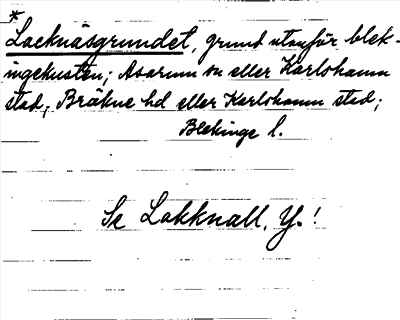 *
Lacknäsgrundet, grund utanför blek-
ingekusten; Asarum sn eller Karlshamn
stad, Bräkne hd eller Karlshamn stad;
Blekinge l.
Se Lakknall, Y.!